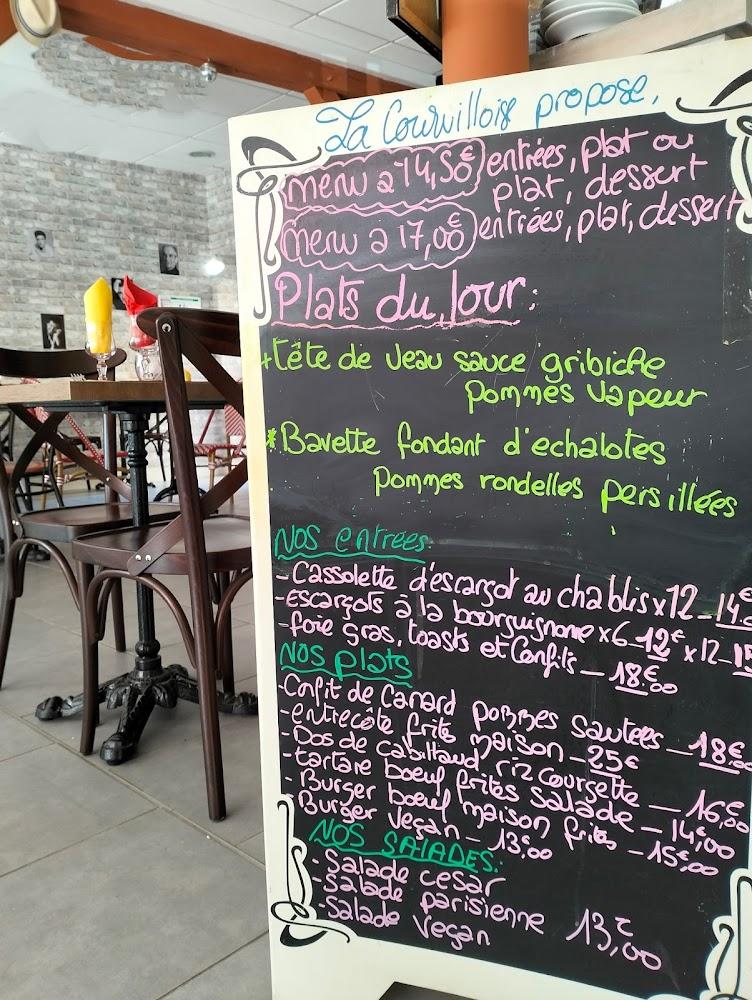 La Courvilloise propose,
menu a 14,50€ entrées, plat ou
plat, dessert
menu a 17,00€ entrées, plat, dessert
Plats du Jour:
+Tête de veau sauce gribiche
Pommes vapeur
*Bavette fondant d'echalotes
Pommes rondelles persillées
Nos entrees
-Cassolette d'escargot au chablis x12-14€
-Escargots à la bourguignonne x6-12€ x12-
-foie gras, toasts et Confits-18€00
Nos plats
-Confit de Canard pommes sautees-18€00
-entrecôte frite maison-25€
-Dos de Cabillaud riz Courgette-16€00
-tartare boeuf frites salade-14€00
-Burger boeuf maison frites-15€00
-Burger Vegan-13€00
NOS SALADES:
-Salade cesar
-Salade parisienne 13€,00
-Salade Vegan